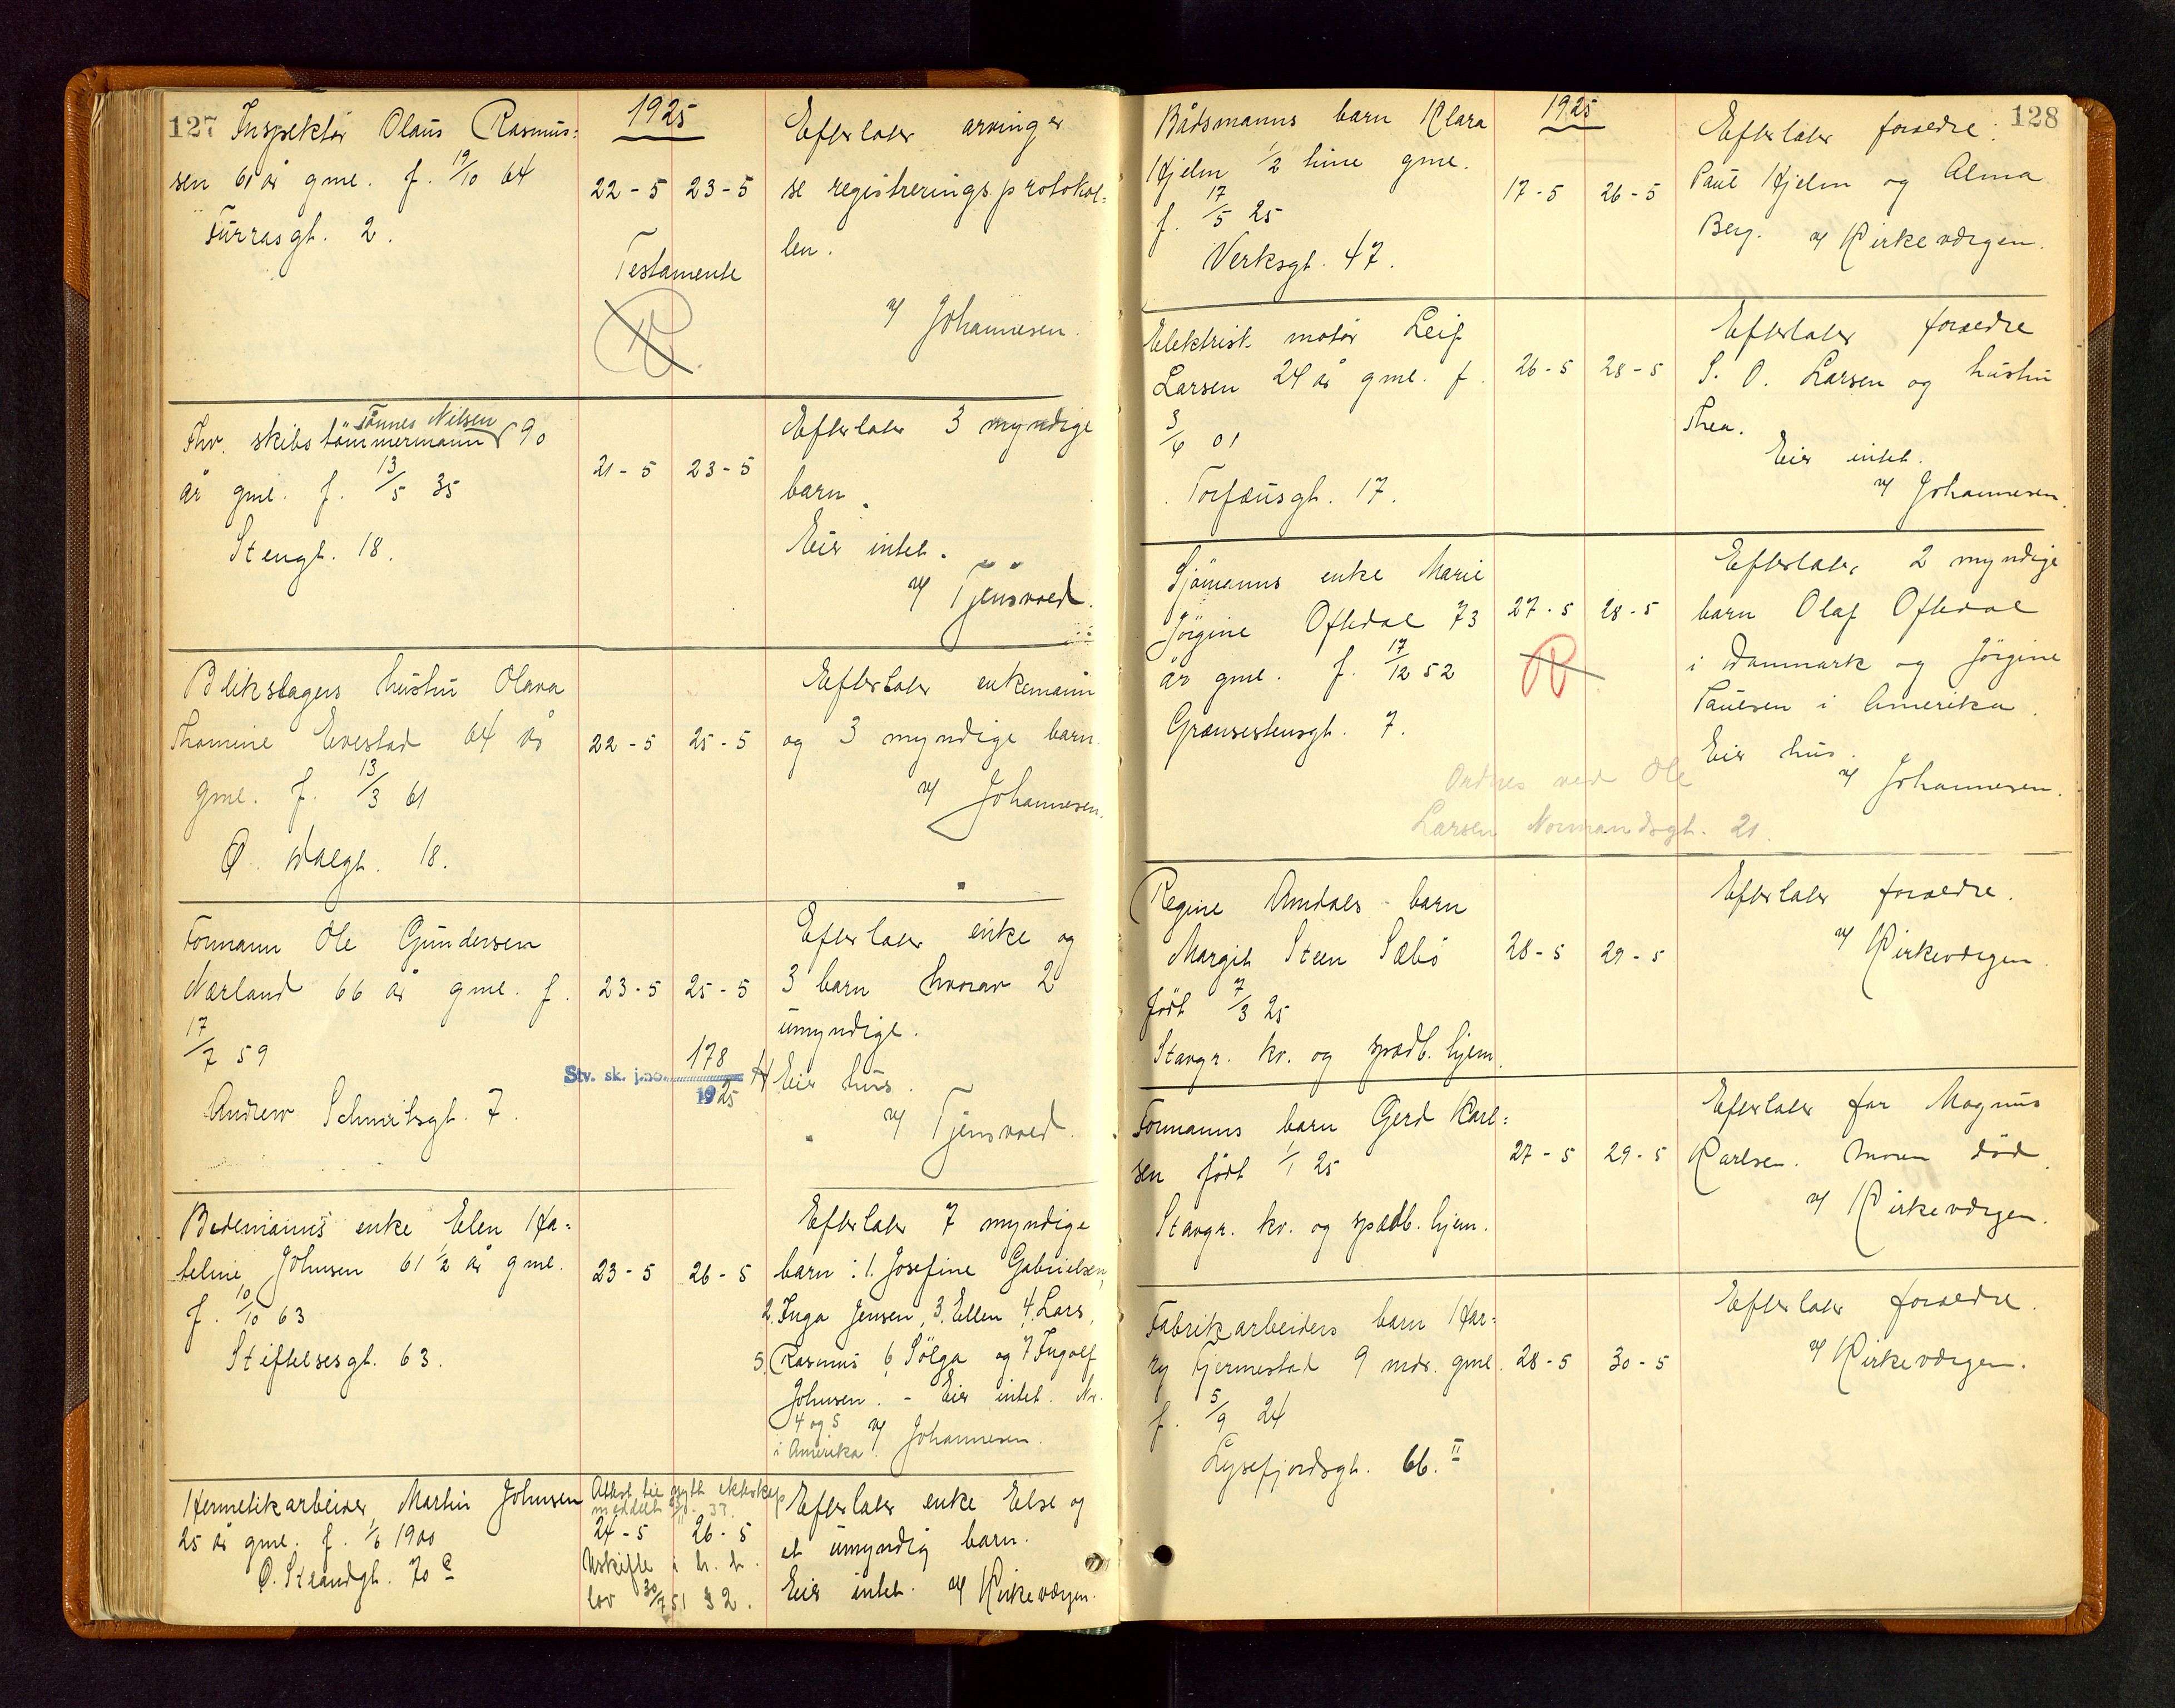 127
1925
Inspektør Olaus Rasmus=
sen 61 år gml. f. 19/10 64
Turrasgt. 2.
22-5 23-5
Testamente
R
Efterlater arvinger
se registreringsprotokol=
len.
v/ Johannesen.
Tønnes Nilsen
Fhv. skibstømmermann 90
år gml. f. 13/5 35
Stengt. 18.
21-5 23-5
Efterlater 3 myndige
barn.
Eier intet.
v/ Tjensvold.
Blikslagers hustru Olava
Thomine Evestad 64 år
gml. f. 13/3 61
Ø. Dalgt. 18.
22-5 25-5
Efterlater enkemann
og 3 myndige barn.
v/ Johannesen.
Formann Ole Gundersen
Nærland 66 år gml. f.
17/7 59
Andrew Schmitsgt. 7.
23-5 25-5
Stv. sk. j.no. 178
1925
Efterlater enke og
3 barn hvorav 2
umyndige.
Eier hus.
v/ Tjensvold.
Bedemanns enke Elen Ka=
teline Johnsen 61 1/2 år gml.
f. 10/10 63
Stiftelsesgt. 63.
23-5 26-5
Efterlater 7 myndige
barn: 1. Josefine Gabrielsen,
2. Inga Jensen, 3. Ellen 4. Lars,
5. Rasmus 6. Sølga og 7 Ingolf
Johnsen. - Eier intet. Nr.
4 og 5
i Amerika. v/ Johannesen.
Hermetikarbeider Martin Johnsen
25 år gml. f. 1/6 1900
Ø. Strandgt. 70 c
Attest til nytt ekteskap
meddelt
24-5 26-5
Uskifte i h. t.
lov 30/7 51 § 2.
Efterlater enke Else og
et umyndig barn.
Eier intet. v/ Kirkevergen.
128
1925
Båtsmanns barn Klara
Hjelm 1/2 time gml.
f. 17/5 25
Verksgt. 47.
17-5 26-5
Efterlater foreldre:
Paul Hjelm og Alma
Berg. v/ Kirkevergen.
Elektrisk motør Leif
Larsen 24 år gml. f.
3/6 01
Torfæusgt. 17.
26-5 28-5
Efterlater foreldre
S. O. Larsen og hustru
Thea.
Eier intet.
v/ Johannesen.
Sjømanns enke Marie
Jørgine Oftedal 73
år gml. f. 17/12 52
Grænsestensgt. 7.
27-5 28-5
R
Efterlater 2 myndige
barn Olaf Oftedal
i Danmark og Jørgine
Paulsen i Amerika.
Eier hus.
v/ Johannesen.
Ordnes ved Ole
Larsen Normandsgt. 21.
Regine Amdals barn
Margit Steen Sæbø
født 7/3 25
Stavgr. kv. og spædb. hjem.
28-5 29-5
Efterlater foreldre.
v/ Kirkevergen.
Formanns barn Gerd Karl=
sen født 1/1 25
Stavgr. kv. og spædb. hjem.
27-5 29-5
Efterlater far Magnus
Karlsen. Moren død.
v/ Kirkevergen.
Fabrikarbeiders barn Har=
ry Tjermestad 9 mdr. gml.
f. 5/9 24
Lysefjordsgt. 66. II
28-5 30-5
Efterlater foreldre.
v/ Kirkevergen.